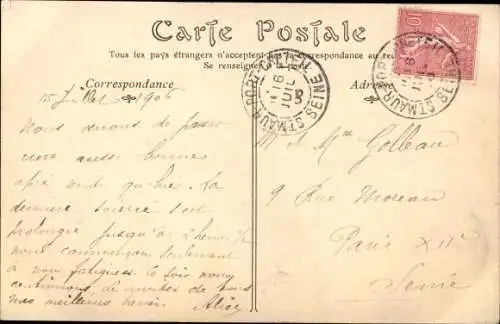 Carte Postale
Tous les pays étrangers n'acceptent pas la correspondance au
Se renseigner à la poste
Correspondance
Adresse
15 Juillet 1906
Nous venons de passer
une aussi bonne
après midi qu'hier. La
dernière soirée s'est
prolongée jusqu'à 2 heures 1/2
nous commençons seulement
à nous fatiguer. Ce soir nous
continuons.
mes meilleurs baisers Alice
M et Mme Golleau
9 Rue Moreau
Paris XIIe
Seine
ST MAUR
SEINE
16
JUIL
ST MAUR
SEINE
10